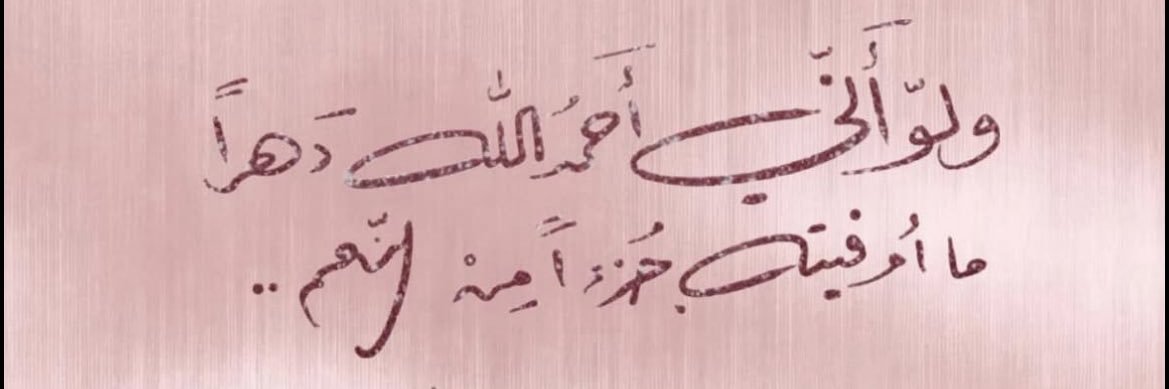 ولوّ أَنّي أَحمدُ اللّٰه دَهراً
ما أوفيته جُزءاً مِنْ النّعم ..